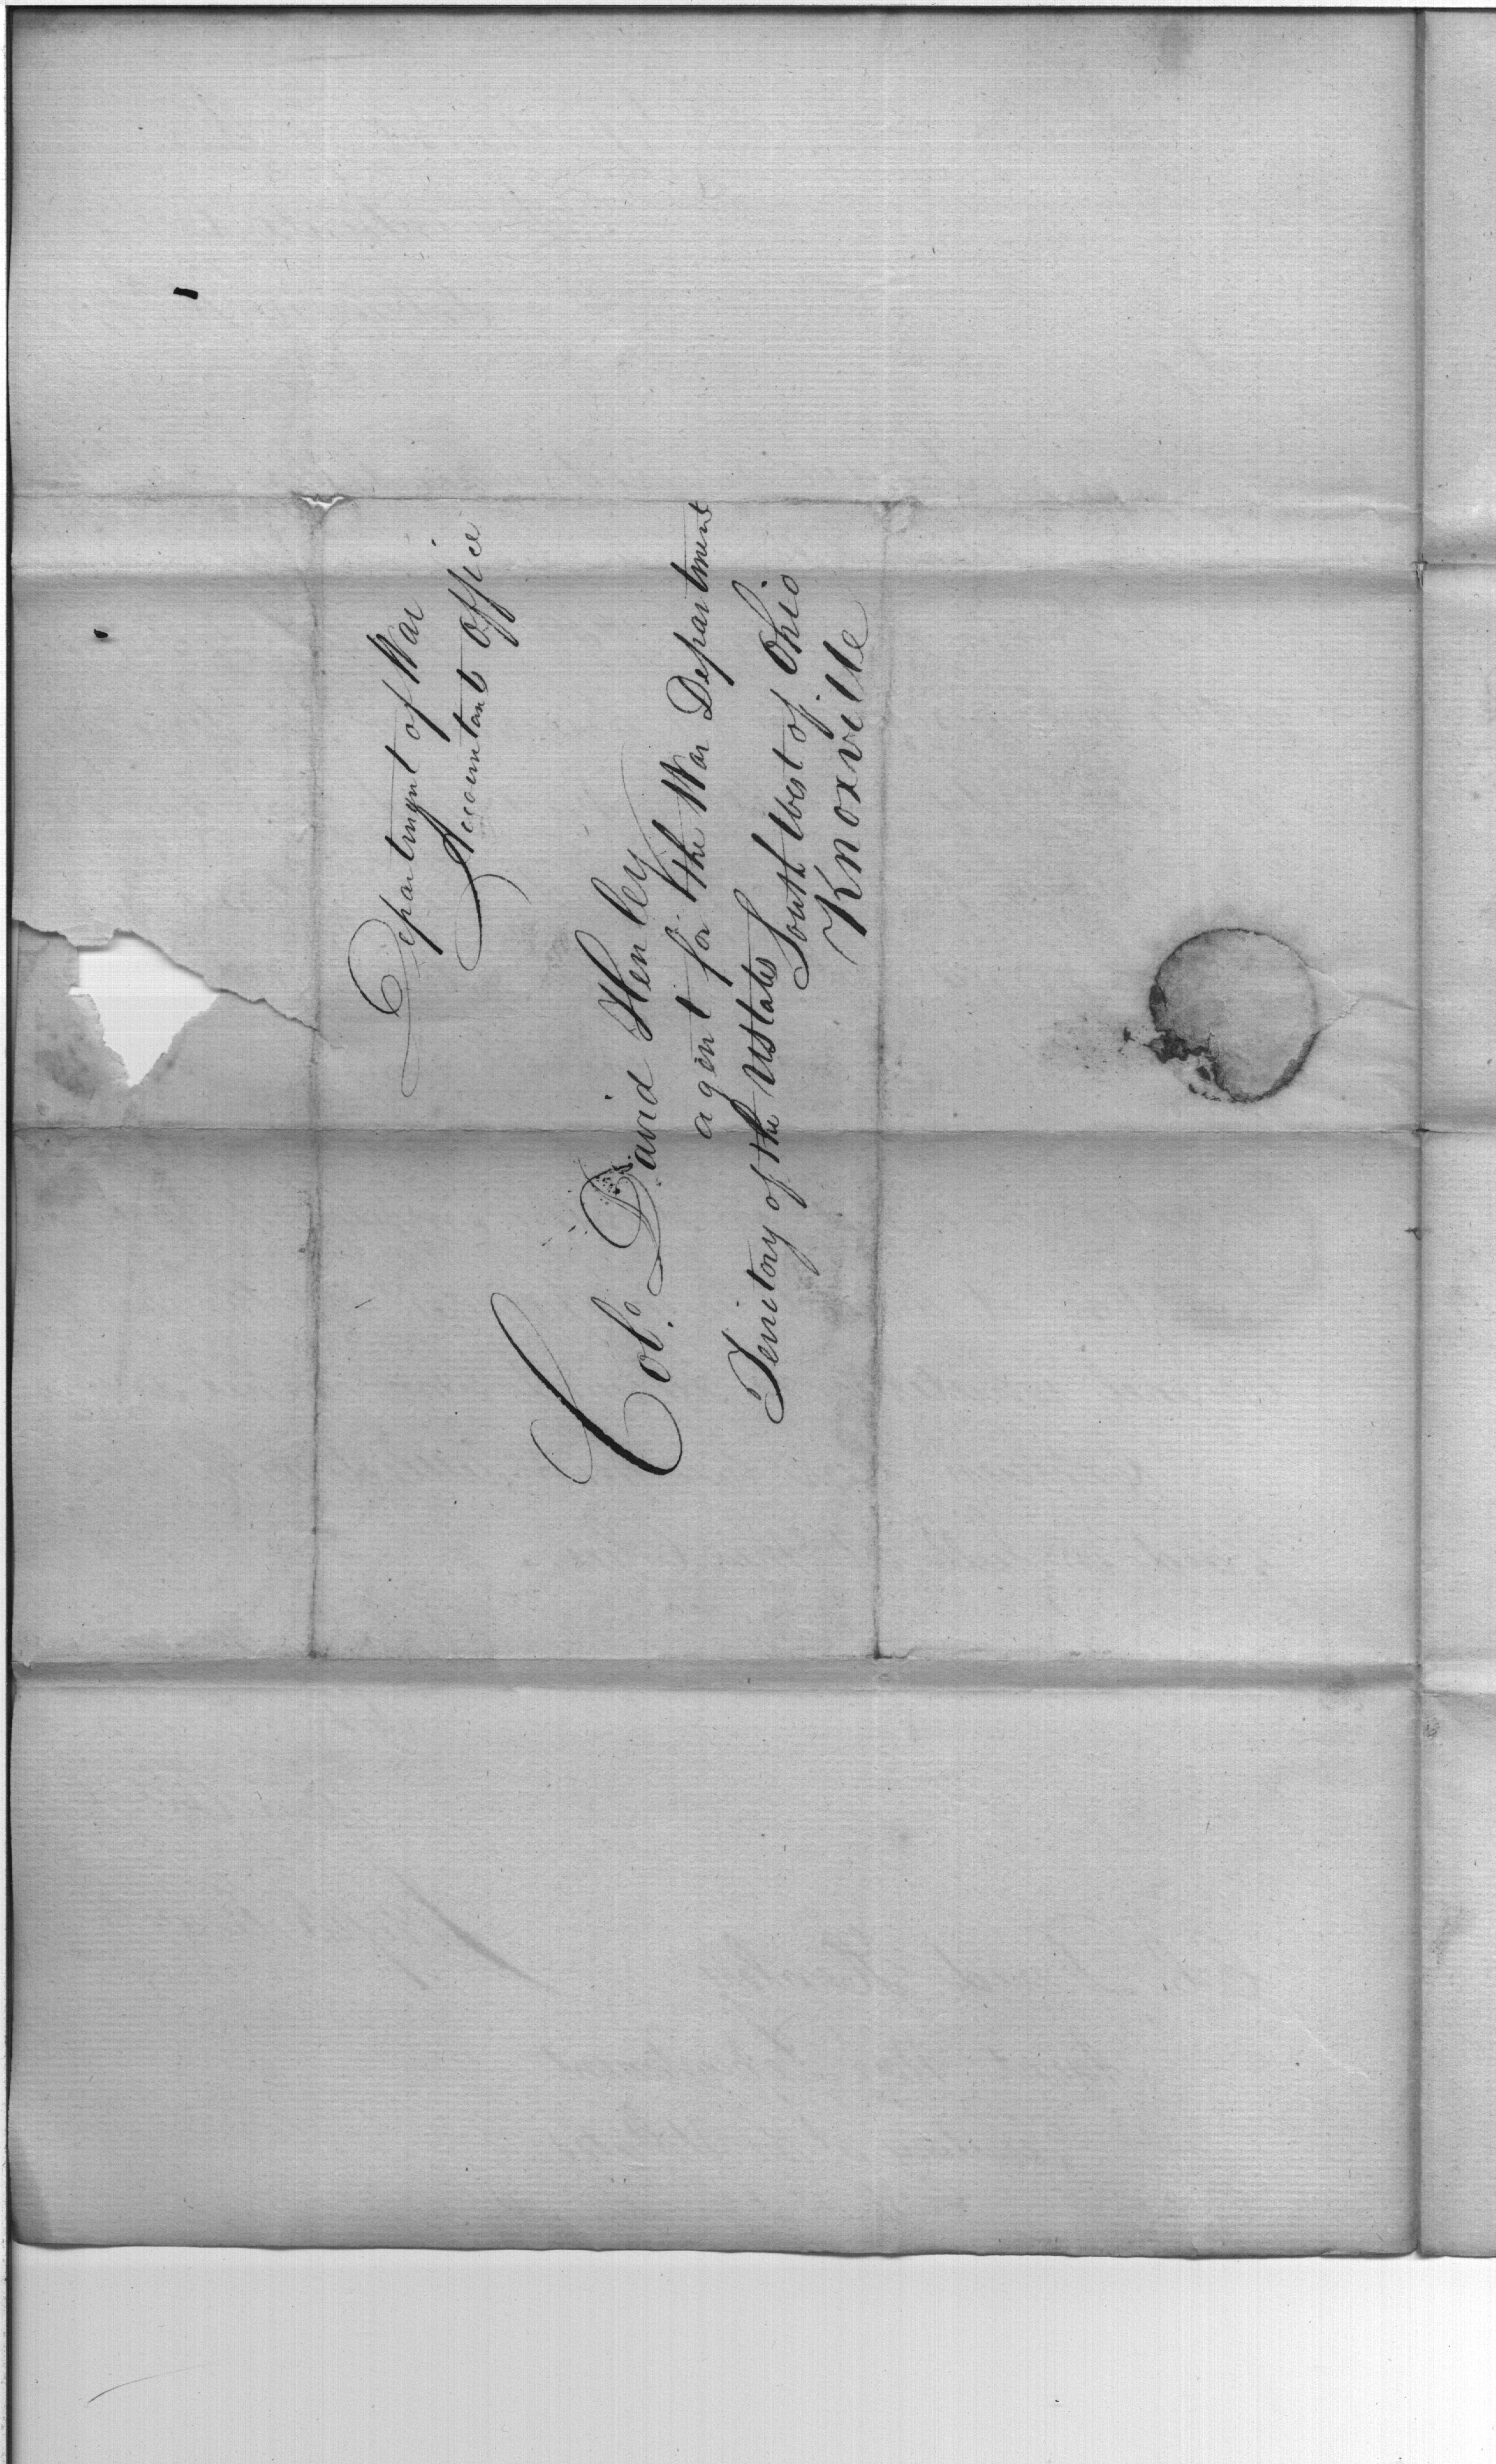 Department of War
Accountants Office
Colo. David Henley
agent for the War Department
Territory of the UStates South West of Ohio
Knoxville